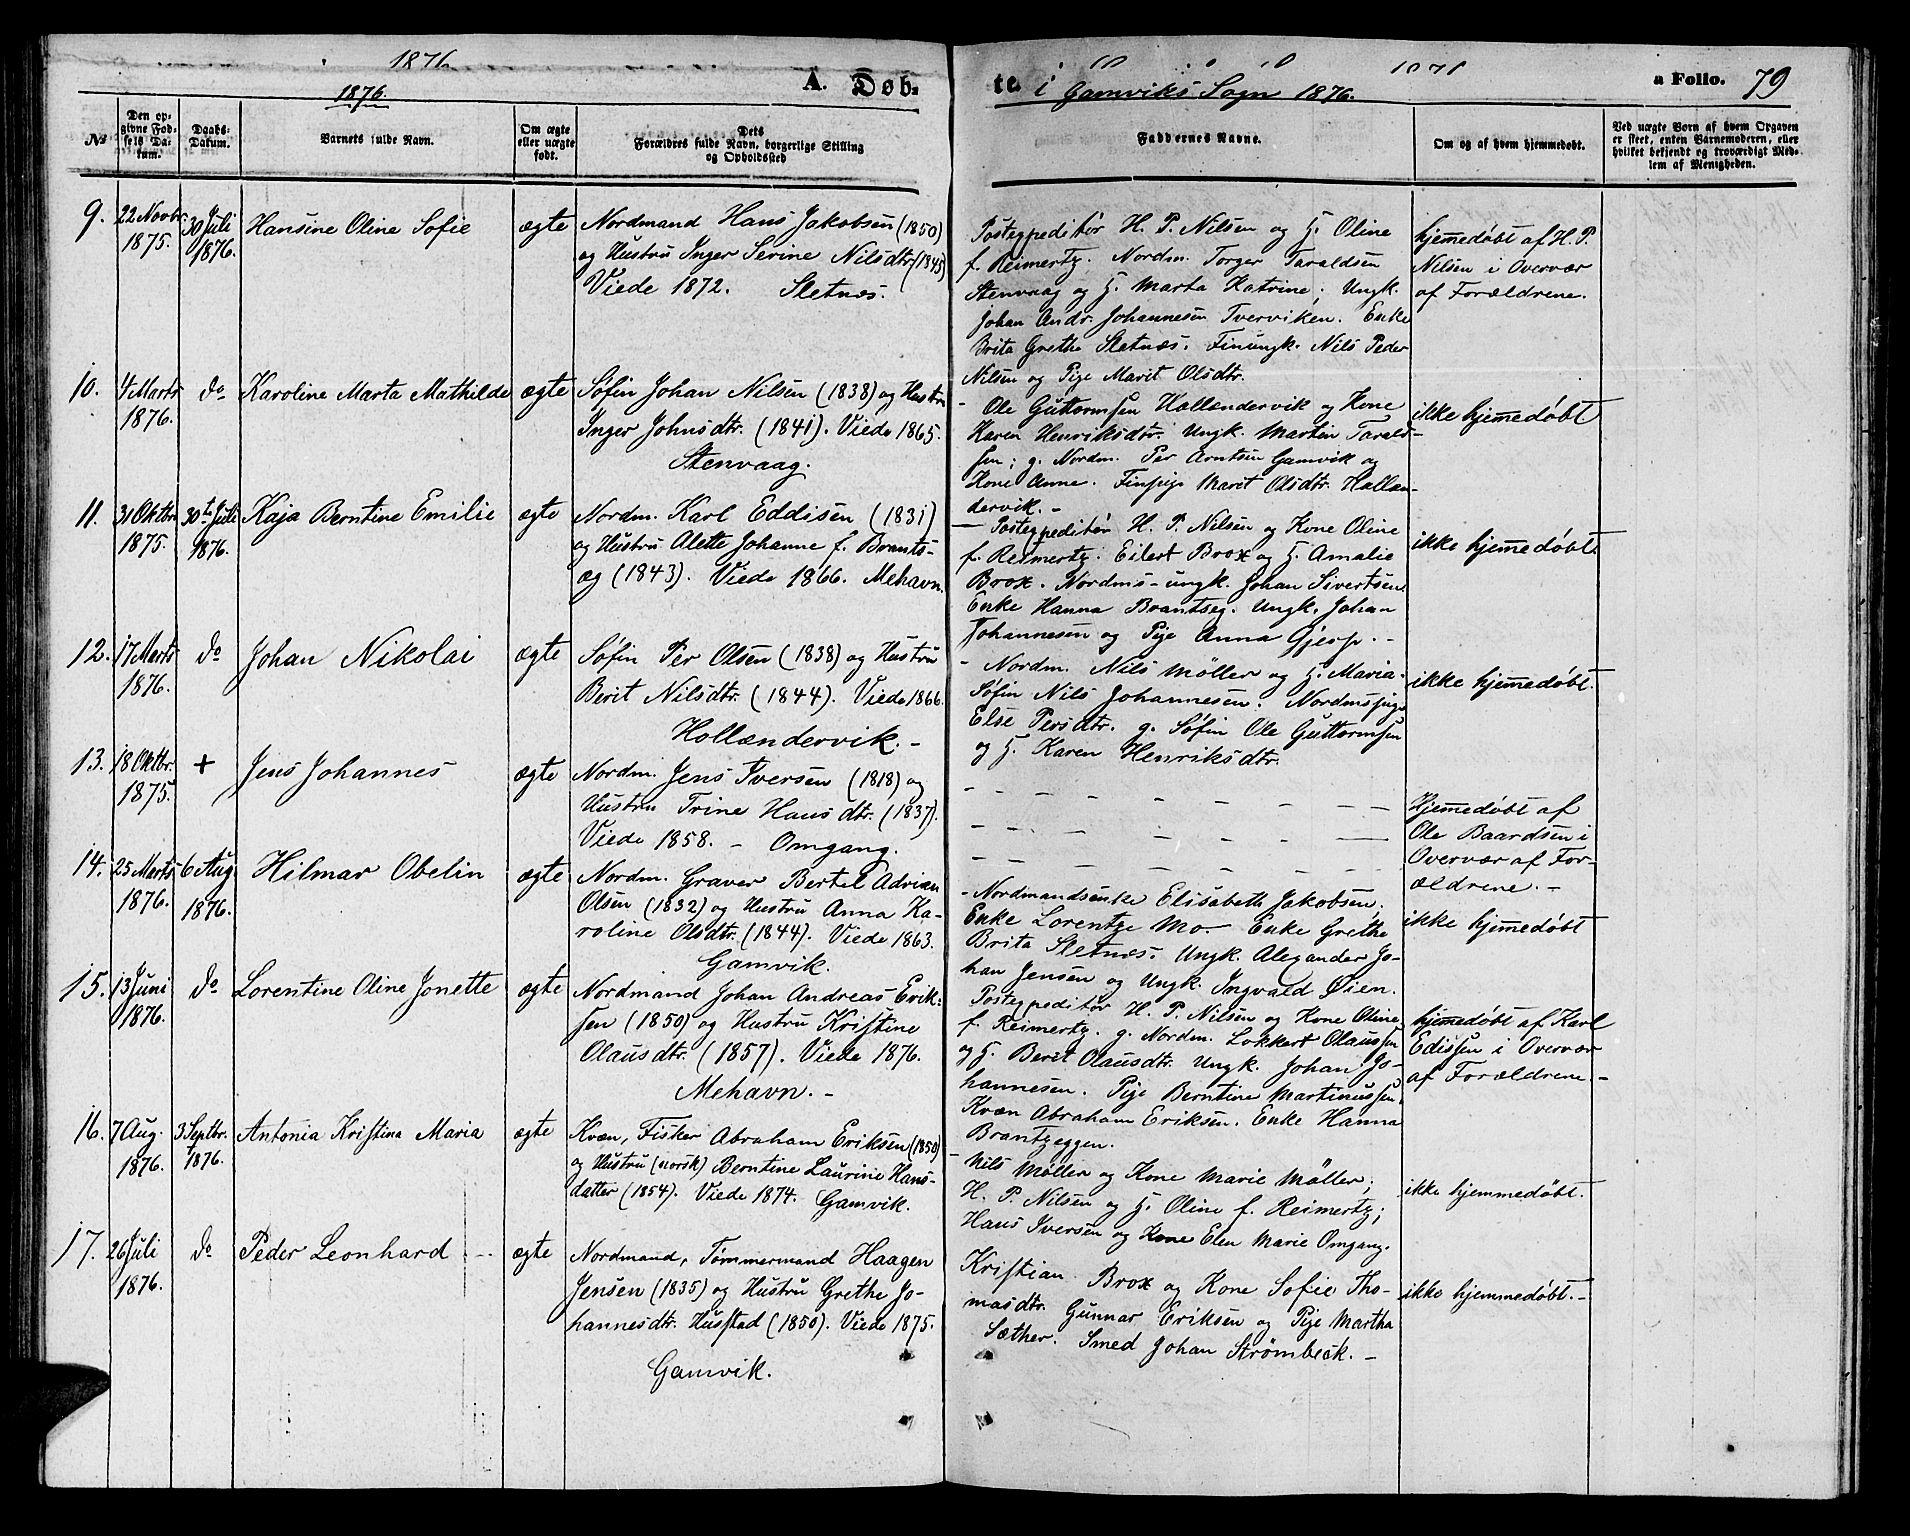 1876
1876.
A. Døb-
te i Gamviks Sogn 1876.
a Folio. 79
№
Den op-
givne Fød-
sels Da-
tum.
Daabs-
Datum.
Barnets fulde Navn.
Om ægte
eller uægte
født.
Dets
Forældres fulde Navn, borgerlige Stilling
og Opholdssted
Faddernes Navne.
Om og af hvem hjemmedøbt.
Ved uægte Børn af hvem Opgaven
er skeet, enten Barnemoderen, eller
hvilket bekjendt og troværdigt Med-
lem af Menigheden.
9.
22 Novbr.
1875.
30 Juli
1876.
Hansine Oline Sofie
ægte
Nordmand Hans Jakobsen (1850)
og Hustru Inger Serine Nilsdtr (1845)
Viede 1872. Sletnæs.
Postexpeditør H. P. Nilsen og H. Oline
f. Reimertz. Nordm. Torger Taraldsen
Stenvaag og H. Marta Katrine; Ungk.
Johan Andr. Johannesen Tverviken. Enke
Brita Grethe Sletnæs. Finungk. Nils Peder
Nilsen og Pige Marit Olsdtr.
hjemedøbt af H. P.
Nilsen i Overvær
af Forældrene.
10.
4 Marts
1876.
do
Karoline Marta Mathilde
ægte
Søfin Johan Nilsen (1838) og Hustru
Inger Johnsdtr. (1841). Viede 1865.
Stenvaag.
- Ole Guttormsen Hollændervik og Kone
Karen Henriksdtr. Ungk. Martin Tarald-
sen; g. Nordm. Per Arntsen Gamvik og
Kone Anne. Finpige Marit Olsdtr. Hollæn-
dervik. -
ikke hjemedøbt
11.
31 Oktbr
1875.
30t Juli
1876.
Kaja Berntine Emilie
ægte
Nordm. Karl Eddisen (1831)
og Hustru Alette Johanne f. Brants-
æg (1843). Viede 1866. Mehavn.
- Postexpeditør H. P. Nilsen og Kone Oline
f. Reimertz. Eilert Brox og H. Amalie
Brox. Nordms-ungk. Johan Sivertsen.
Enke Hanna Brantseg. Ungk. Johan
Johannesen og Pige Anna Gjesp. -
ikke hjemedøbt.
12.
17 Marts
1876.
do
Johan Nikolai
ægte
Søfin Per Olsen (1838) og Hustru
Berit Nilsdtr. (1844). Viede 1866.
Hollændervik. -
- Nordm. Nils Möller og H. Maria.
Søfin Nils Johannesen. Nordmspige
Else Persdtr. g. Søfin Ole Guttormsen
og H. Karen Henriksdtr.
ikke hjemedøbt.
13.
18 Oktbr.
1875.
+
Jens Johannes
ægte
Nordm. Jens Iversen (1818) og
Hustru Trine Hansdtr. (1837).
Viede 1858. - Omgang.
- - - - - - - - -
- - - - - - - -
- - - - - - - -
Hjemedøbt af
Ole Baardsen i
Overvær af For-
ældrene. -
14.
25 Marts
1876.
6 Aug.
1876.
Hilmar Obelin
ægte
Nordm. Graver Bertel Adrian
Olsen (1832) og Hustru Anna Ka-
roline Olsdtr. (1844). Viede 1863.
Gamvik.
- Nordmandsenke Elisabeth Jakobsen,
Enke Lorentze Mo. - Enke Grethe
Brita Sletnæs. Ungk. Alexander Jo-
han Jensen og Ungk. Ingvald Øien.
ikke hjemedøbt
15.
13 Juni
1876.
do
Lorentine Oline Jonette
ægte
Nordmand Johan Andreas Erik-
sen (1850) og Hustru Kristine
Olausdtr. (1857). Viede 1876.
Mehavn. -
Postexpeditør H. P. Nilsen og Kone Oline
f. Reimertz. g. Nordm. Lokkert Olaussen
og H. Berit Olausdtr. Ungk. Johan Jo-
hannesen. Pige Berntine Martinussen.
Kvæn Abraham Eriksen. Enke Hanna
Brantzeggen.
hjemedøbt af Karl
Edissen i Overvær
af Forældrene. -
16.
7 Aug.
1876.
3 Septbr.
1876.
Antonia Kristina Maria
ægte
Kvæn, Fisker Abraham Eriksen (1850)
og Hustru (norsk) Berntine Laurine Hans-
datter (1854). Viede 1874. Gamvik.
- Nils Möller og Kone Marie Möller;
H. P. Nilsen og H. Oline f. Reimertz;
Hans Iversen og Kone Elen Marie Omgang.
ikke hjemmedøbt.
17.
26 Juli
1876.
do
Peder Leonhard - -
ægte
Nordmand, Tømmermand Haagen
Jensen (1835) og Hustru Grethe Jo-
hannesdtr. Husstad (1850). Viede 1875.
Gamvik.
Kristian Brox og Kone Sofie Tho-
masdtr. Gunnar Eriksen og Pige Martha
Sæther. Smed Johan Strömbeck. -
ikke hjemmedøbt. -